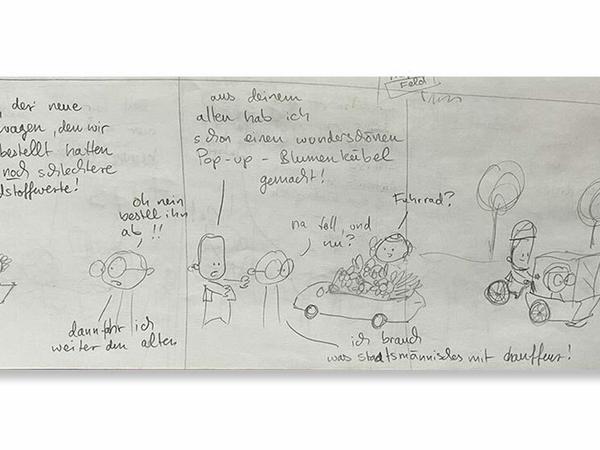 der neue
wagen, den wir
bestellt hatten
noch schlechtere
dstoffwerte!
oh nein
bestell ihn
ab!!
dann fahr ich
weiter den alten
aus deinem
alten hab ich
schon einen wunderschönen
Pop-up-Blumenkübel
gemacht!
na toll, und
nu?
ich brauch
was staatsmännisches mit chauffeur!
Fahrrad?
Feld